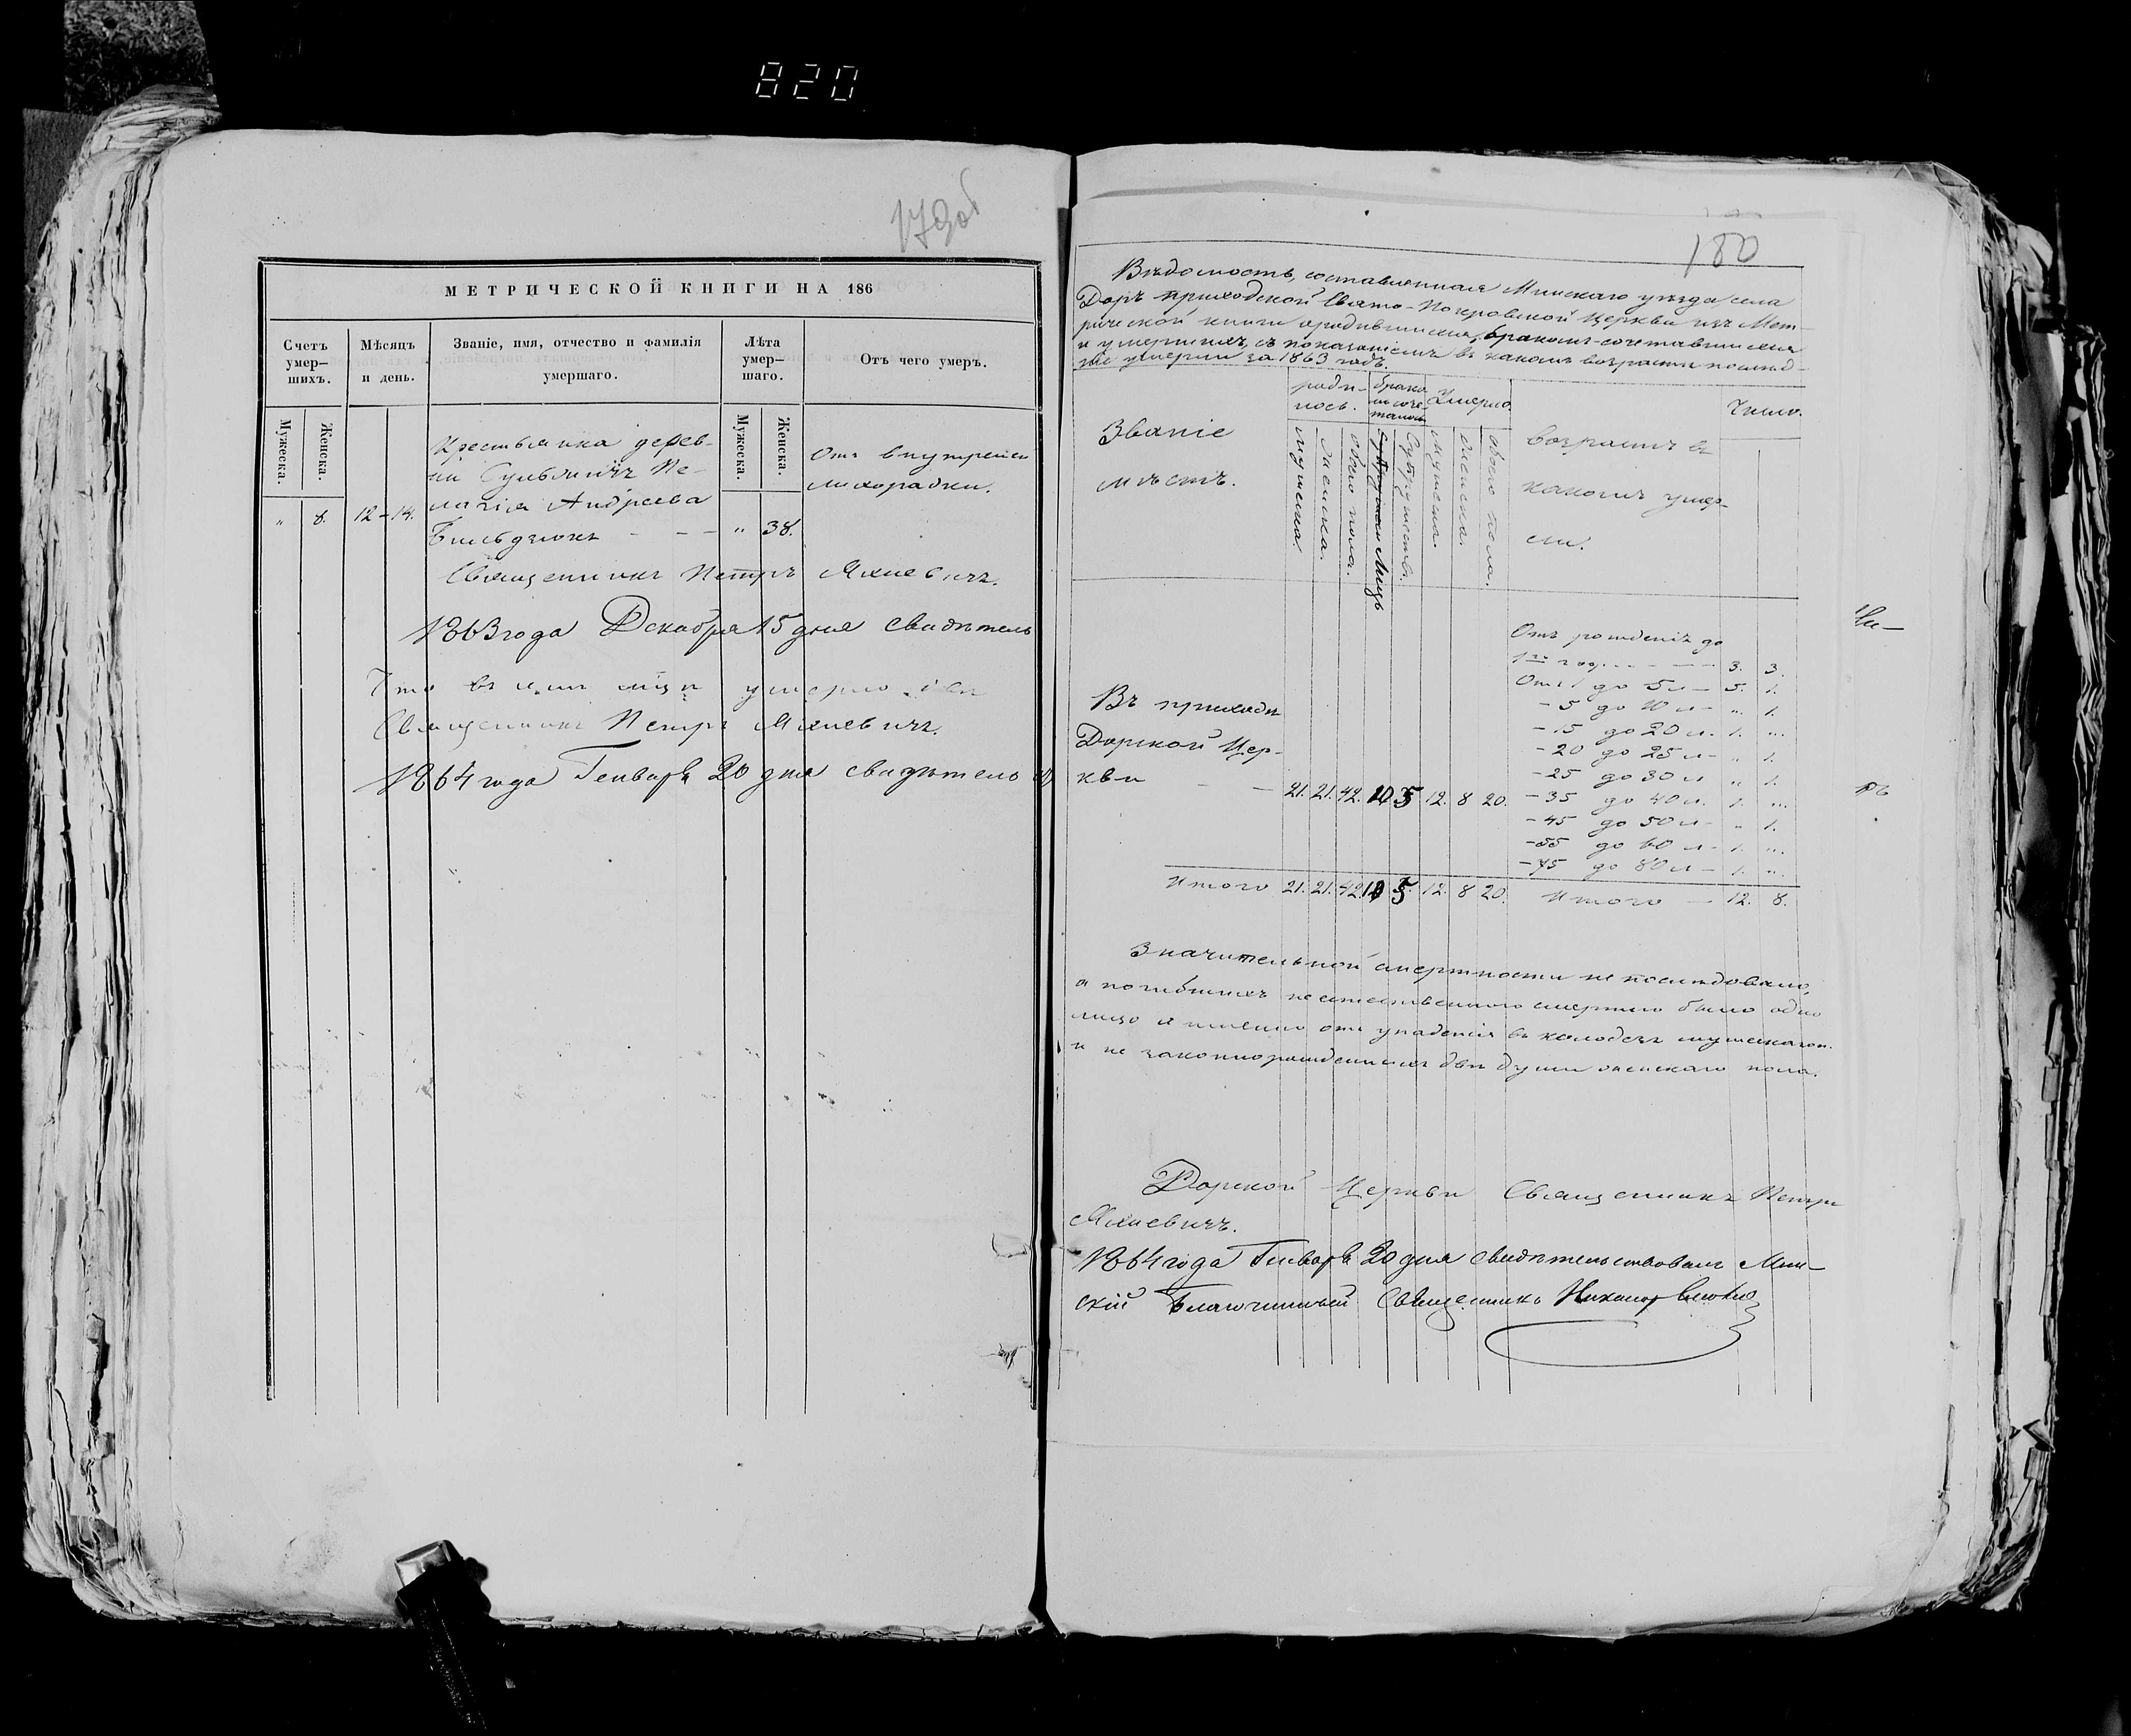 820
179об
МЕТРИЧЕСКОЙ КНИГИ НА 186
Счетъ умер-шихъ.
Мѣсяцъ и день.
Званіе, имя, отчество и фамилія умершаго.
Лѣта умер-шаго.
Отъ чего умеръ.
Мужеска.
Женска.
Мужеска.
Женска.
Крестьянка дерев-
ни
Андреева
" 8. 12 – 14. – – " 38.
Отъ внутренней
лихорадки.
Священникъ Петръ Михневичъ.
1863 года Декабря 15 дня свидѣтель
Что въ умерло
Священникъ Петръ Михневичъ.
1864 года Генваря 20 дня свидѣтельство
180
Вѣдомость, составленная Минскаго уѣзда села
Доръ приходской Свято-Покровской Церкви изъ Мет-
рической книги о родившихся, бракомъ-сочетавшихся
и умершихъ, съ показаніемъ въ какомъ возрастѣ послѣд-
ніе умерли за 1863 годъ.
Званіе
мѣстъ.
роди-
лось.
брако-
мъ соче-
талось
Умерло.
возрастъ въ
какомъ умер-
ли.
Число.
мужеска.
женска.
обоего пола.
Лицъ
Супружествъ.
мужеска.
женска.
обоего пола.
Отъ рожденія до
1го год. – – – 3. 3.
Отъ 1 до 5 л – 5. 1.
– 5 до 10 л – " 1.
– 15 до 20 л. 1. "
– 20 до 25 л – " 1.
– 25 до 30 л " 1.
– 35 до 40 л. 1. "
– 45 до 50 л – " 1.
– 55 до 60 л – 1. "
– 75 до 80 л – 1. "
Въ приходѣ
Дорской Цер-
кви – – 21. 21. 42. 10 5 12. 8 20.
Итого 21. 21. 42 10 5. 12. 8 20. Итого – 12. 8.
Значительной смертности не послѣдовало,
а погибшихъ неестественною смертію было одно
лицо и именно отъ упаденія въ колодезь мужеска
и не законнорожденныхъ двѣ души женскаго пола.
Дорской Церкви Священникъ Петръ
Михневичъ.
1864 года Генваря 20 дня свидѣтельствовалъ Мин-
скій Благочинный Священникъ